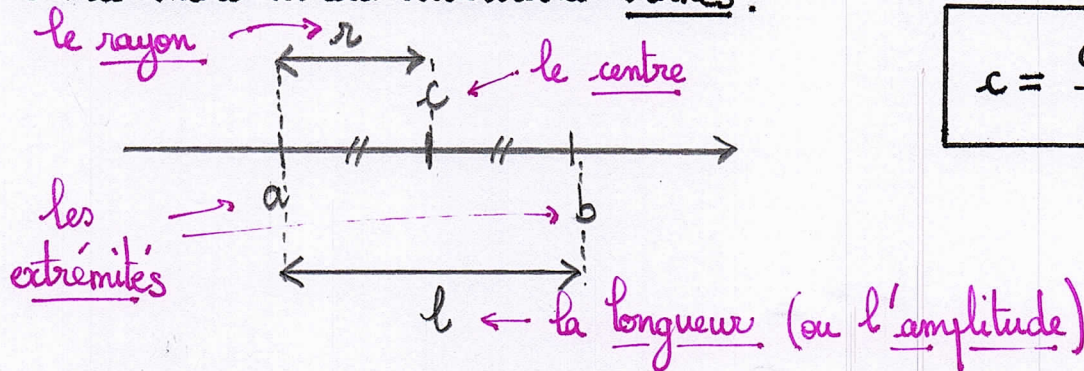 le rayon
r
c
le centre
c =
a
b
les
extrémités
l
la longueur (ou l'amplitude)